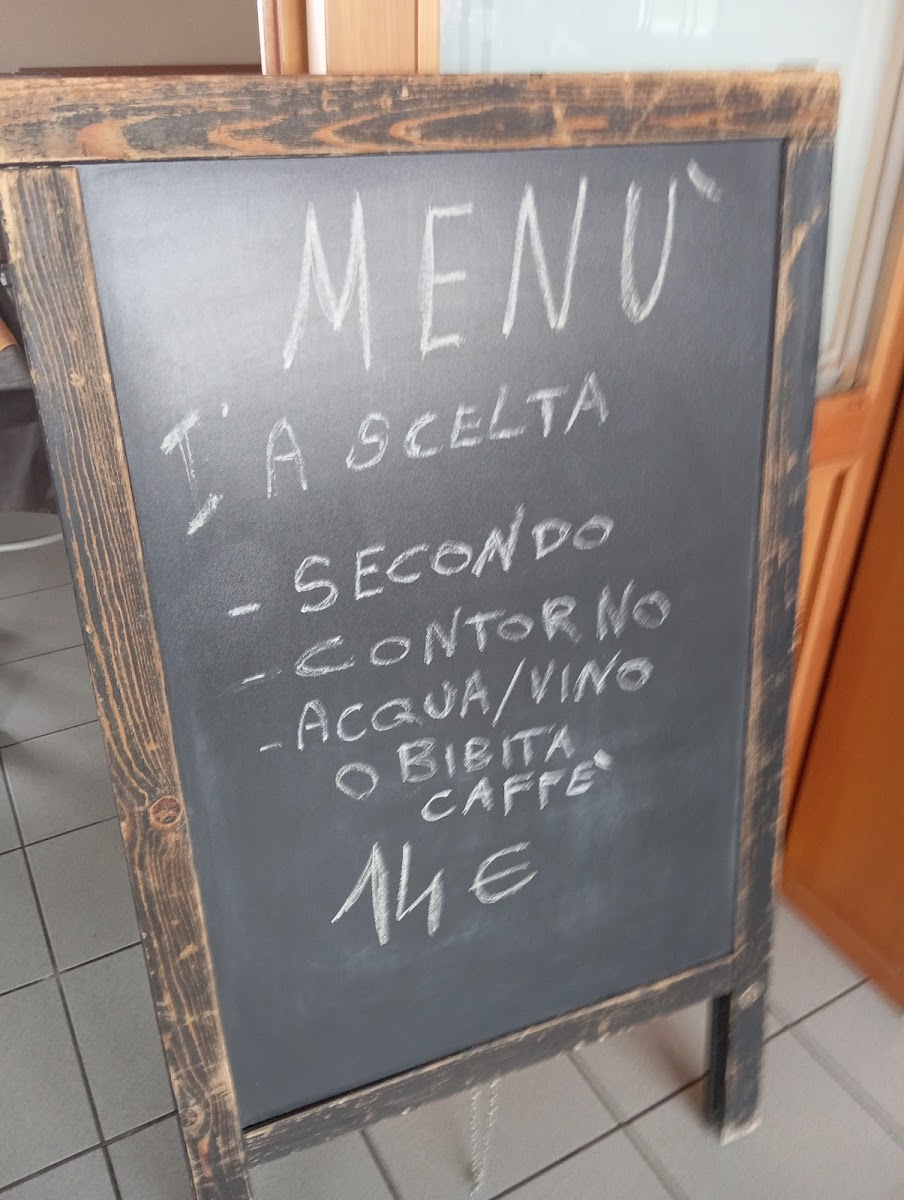 MENÙ
I° A SCELTA
- SECONDO
- CONTORNO
- ACQUA/VINO
O BIBITA
CAFFÈ
14 €